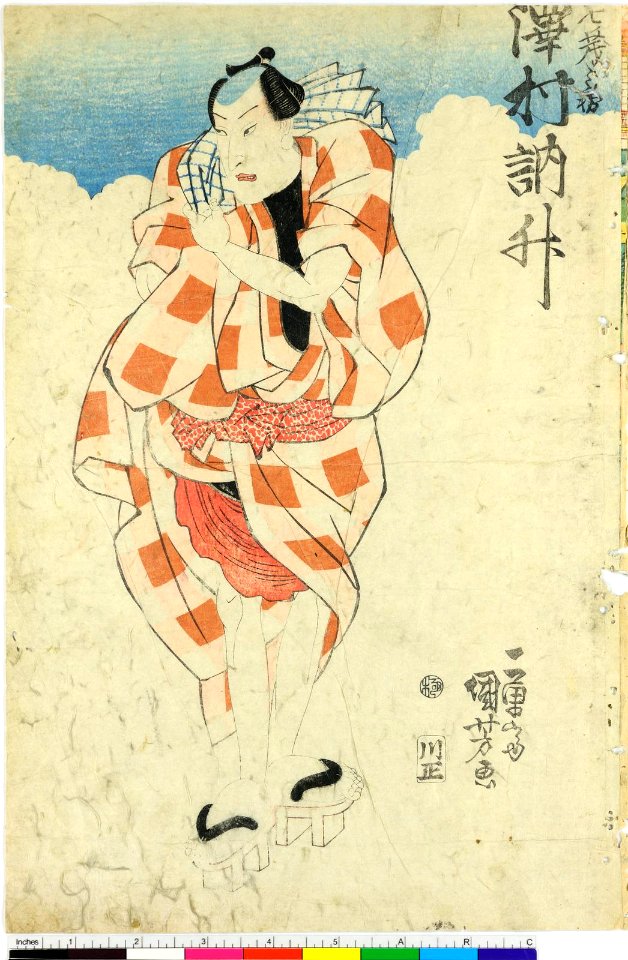 澤村訥升
一勇斎
國芳画
極
川正
Inches 1 2 3 4 5 A R C